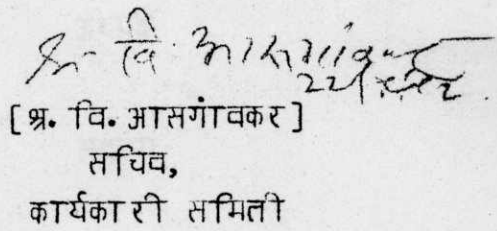 श्र. वि. आसगांवकर
[श्र. वि. आसगांवकर]
सचिव,
कार्यकारी समिती